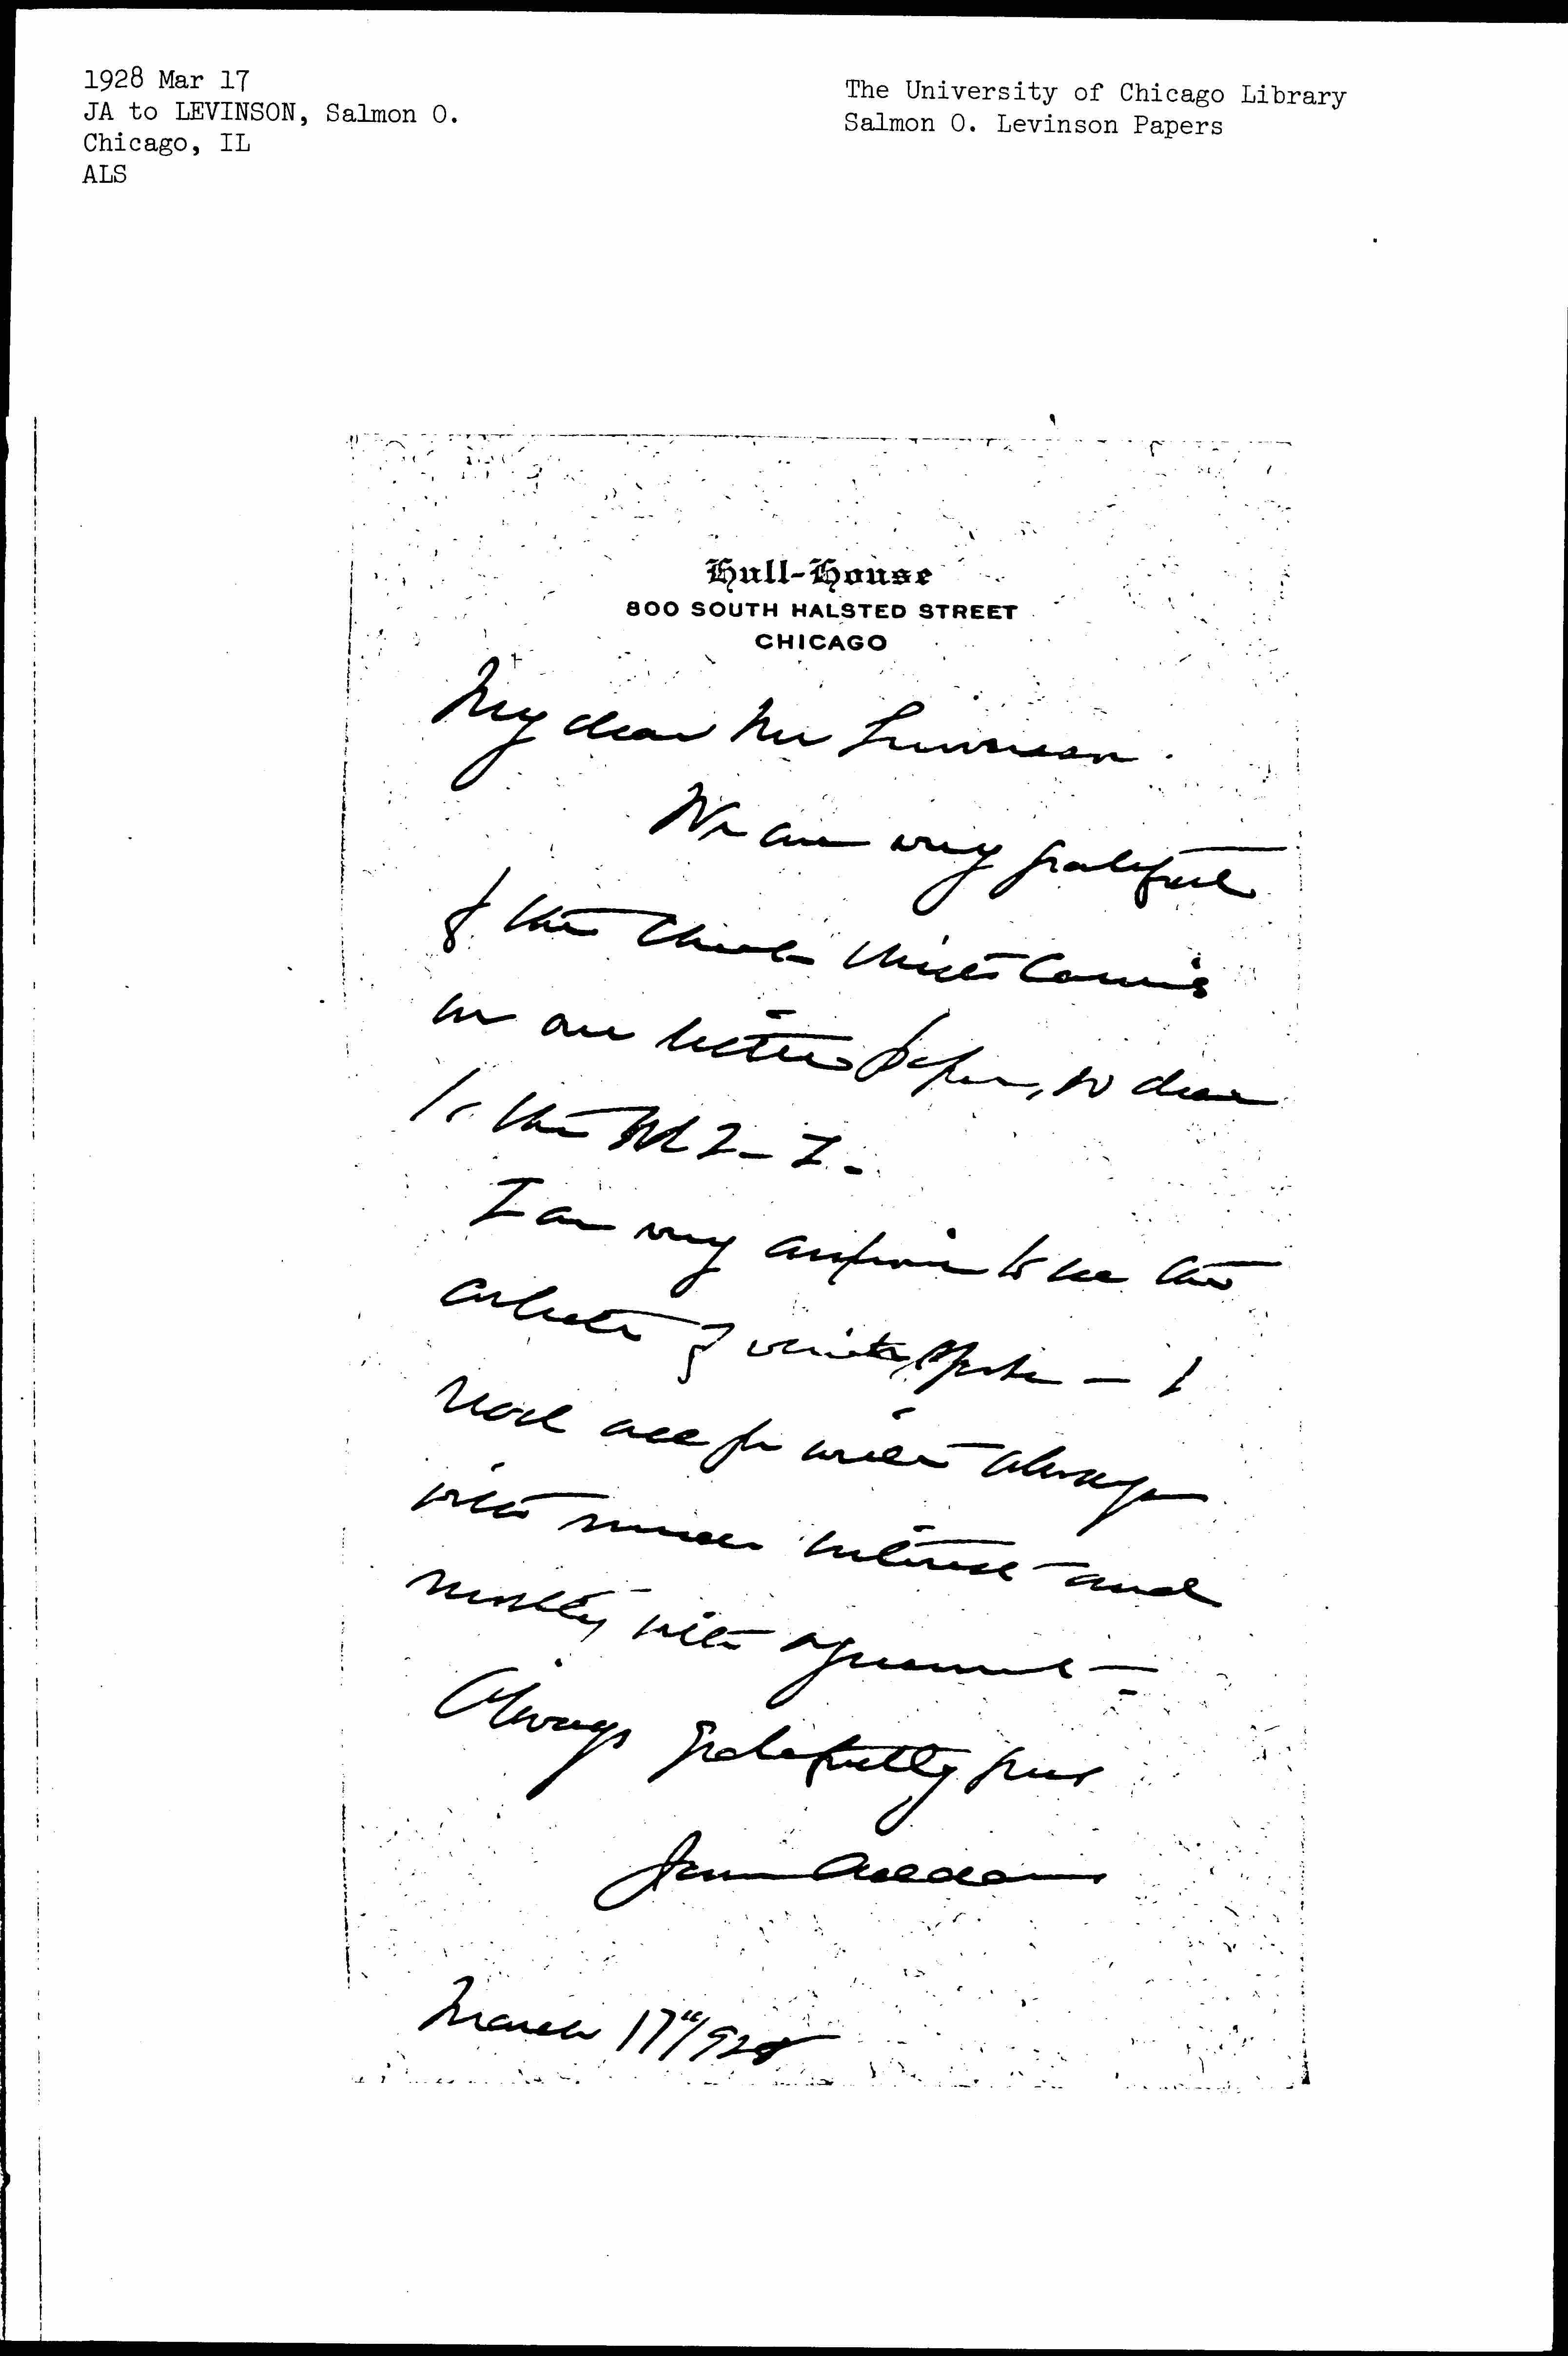 1928 Mar 17
JA to LEVINSON, Salmon O.
Chicago, IL
ALS
The University of Chicago Library
Salmon O. Levinson Papers
Hull-House
800 SOUTH HALSTED STREET
CHICAGO
My dear Mr Levinson.
We are very grateful
for the check which comes
in our letter paper, so dear
to the W I L.
I am very anxious to see the
article of which you spoke — I
read all you write always
with much interest and
mostly with agreement —
Always gratefully yours
Jane Addams
March 17" 1928